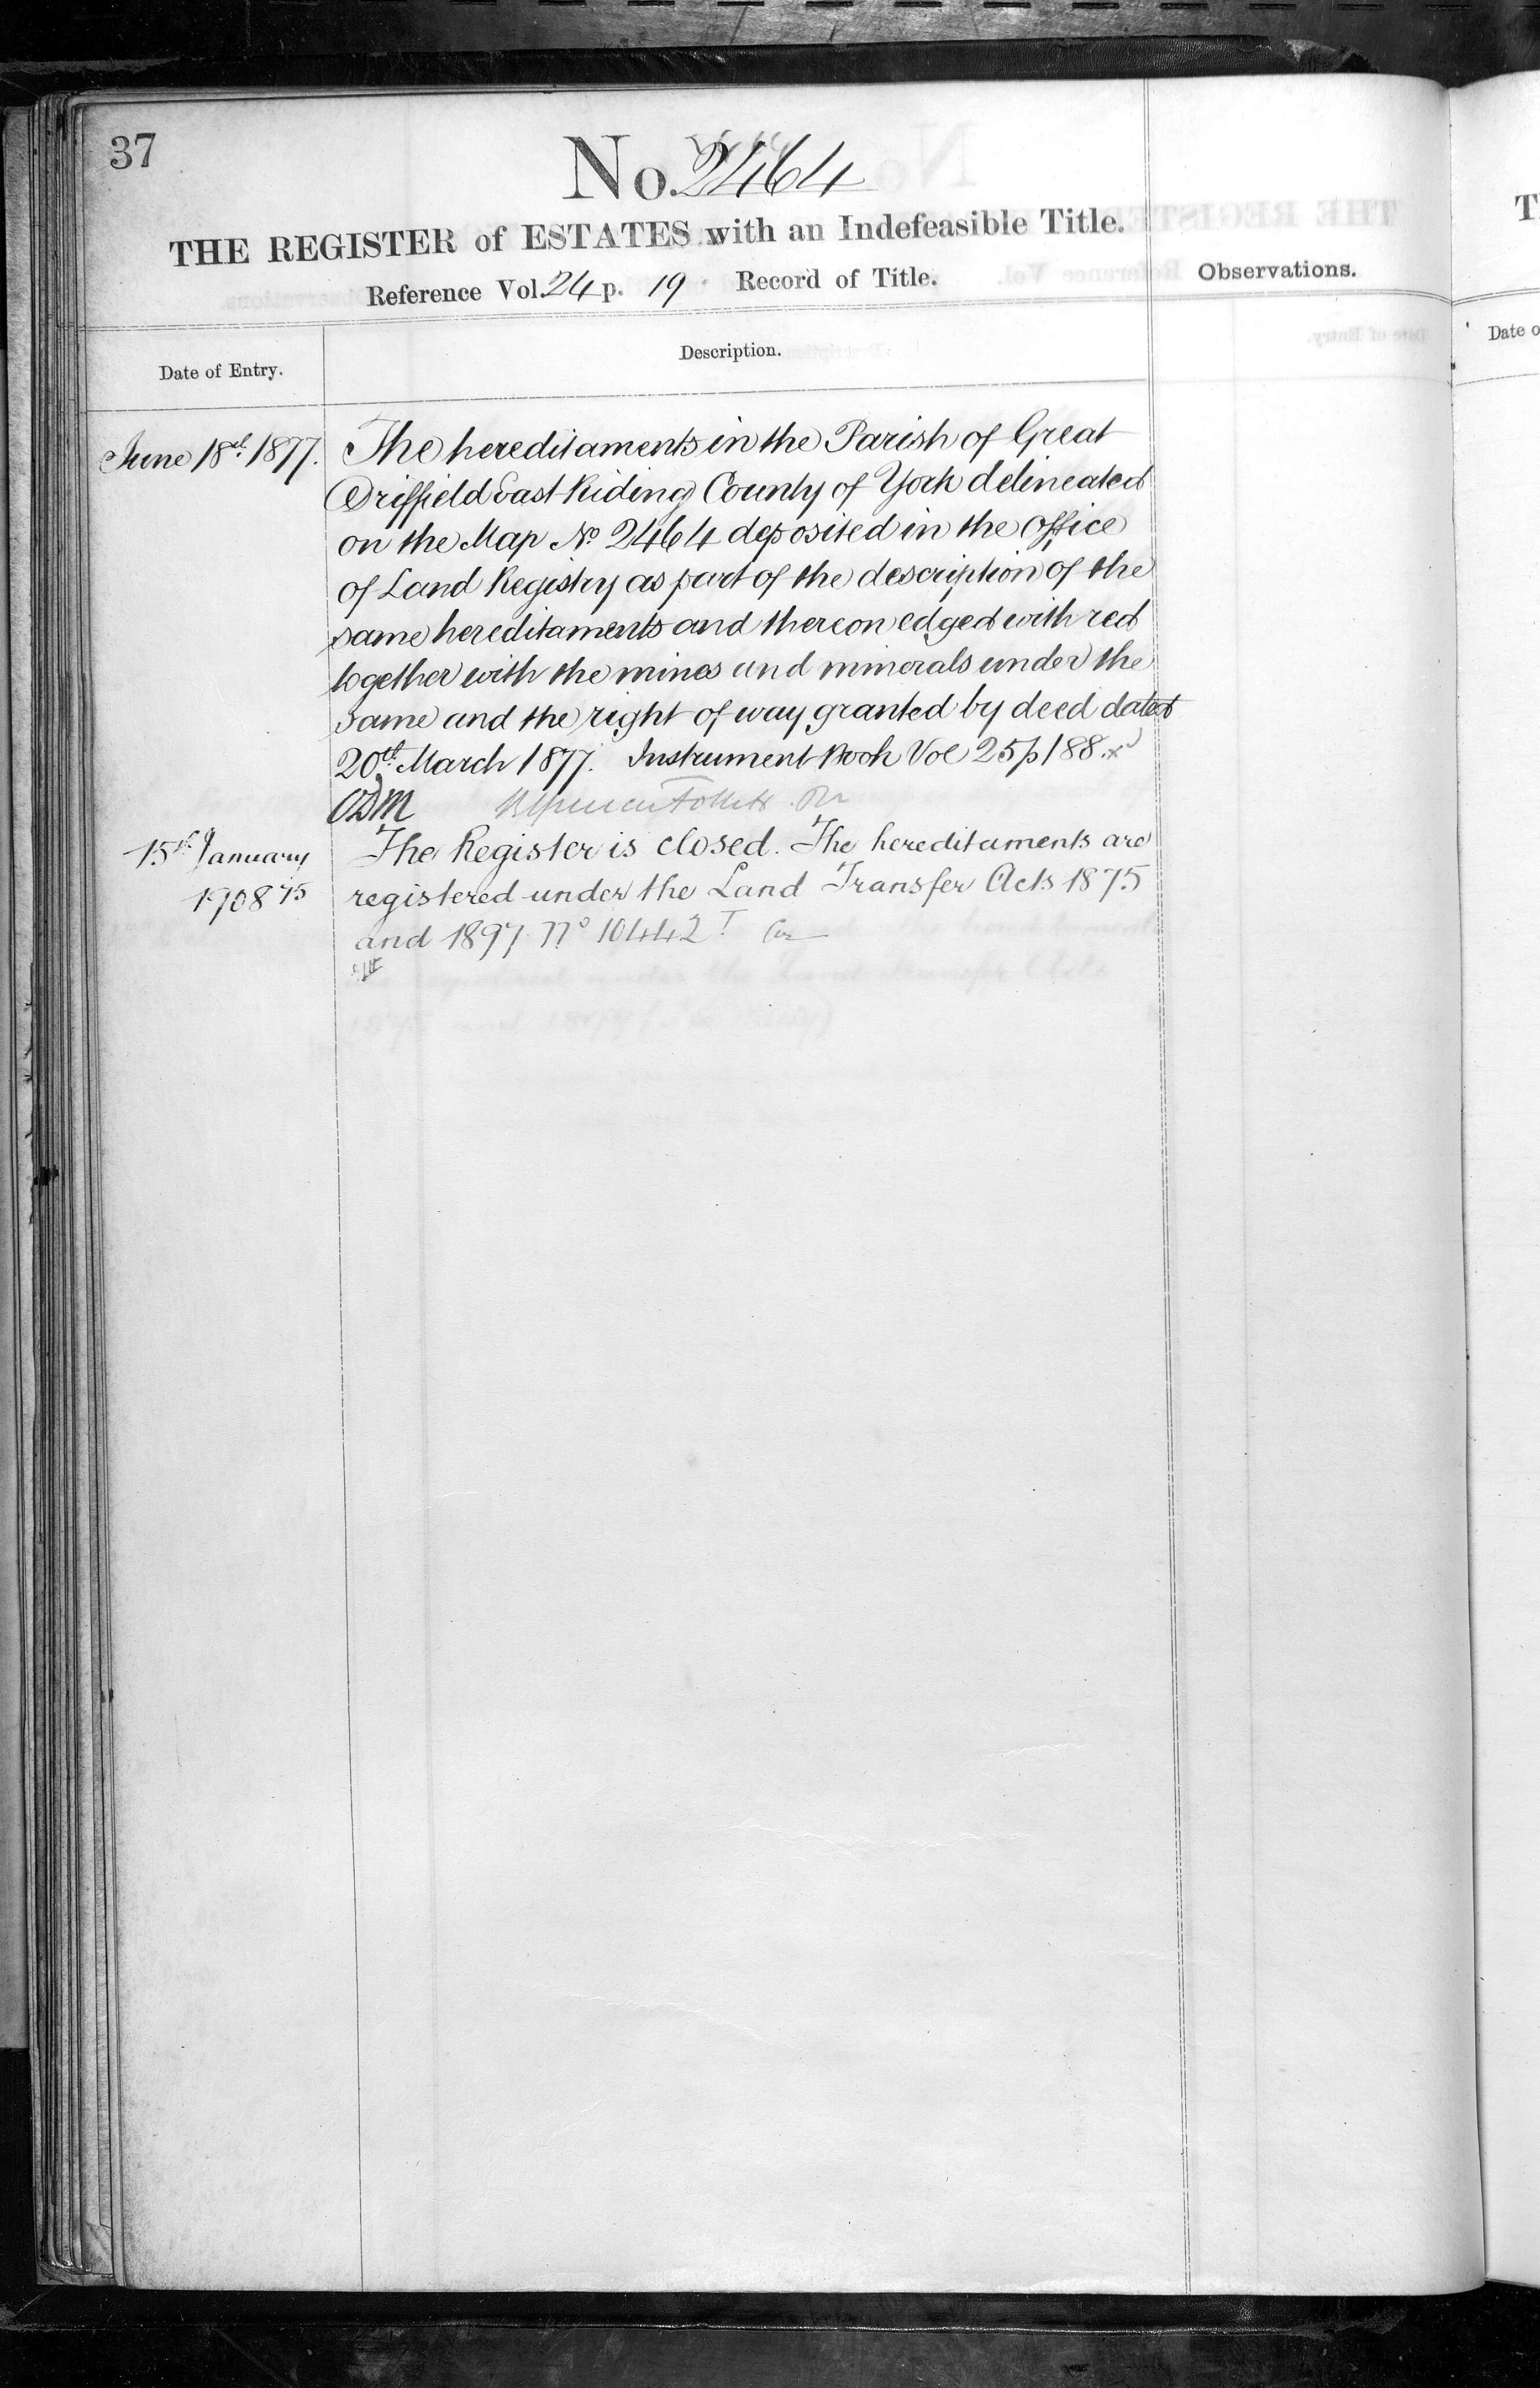 37
No. 2464
THE REGISTER of ESTATES with an Indefeasible Title.
Reference Vol. 24 p. 19 Record of Title.
Observations.
Date of Entry.
Description.
June 18th 1877.
The hereditaments in the Parish of Great
Driffield East Riding County of York delineated
on the Map No 2464 deposited in the office
of Land Registry as part of the description of the
same hereditaments and thereon edged with red
together with the mines and minerals under the
same and the right of way granted by deed dated
20th March 1877. Instrument Book Vol 25 p 188.
ODM
15th January
1908
The Register is closed. The hereditaments are
registered under the Land Transfer Acts 1875
and 1897 No 10442
T
Date o